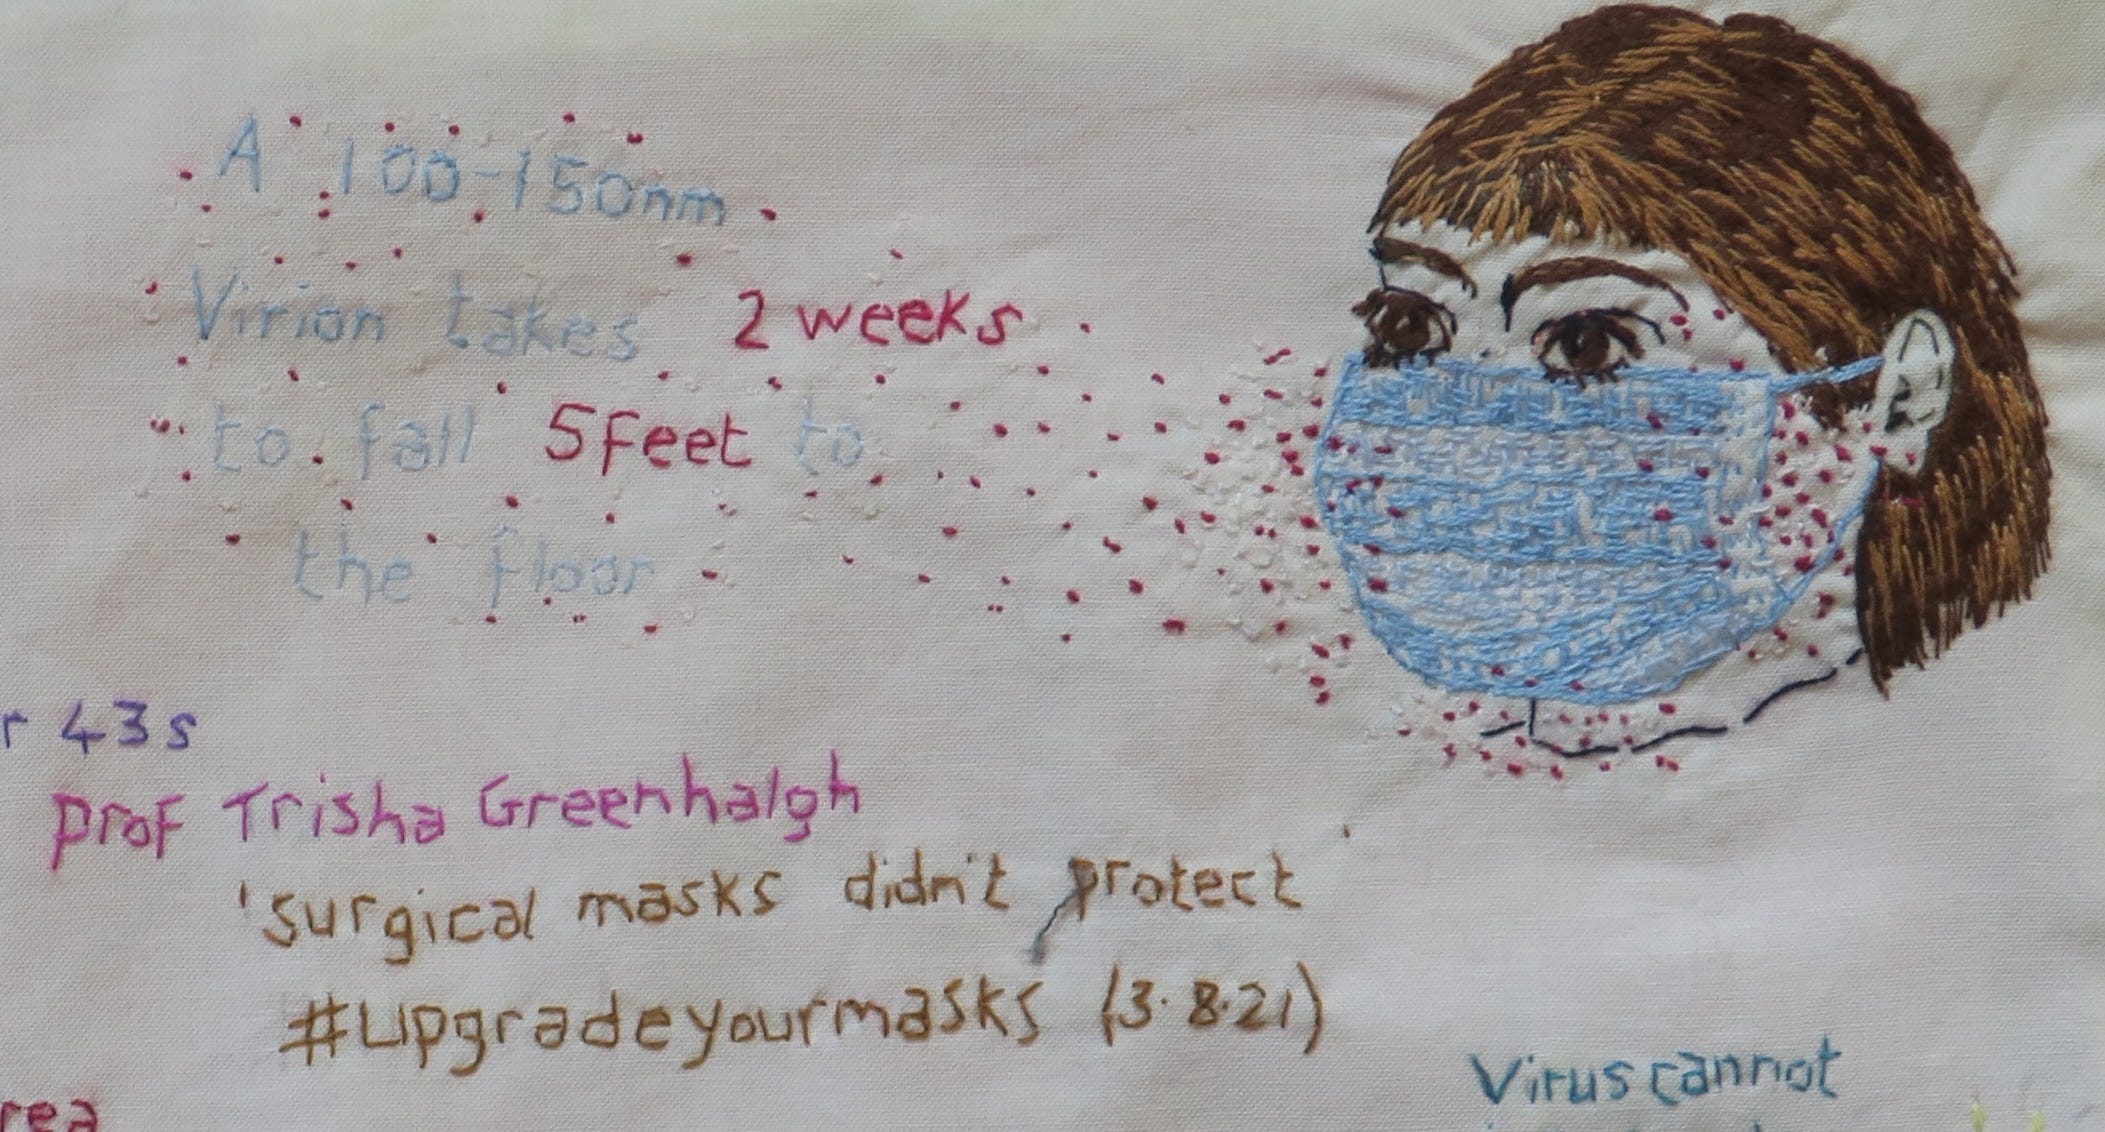 A 100-150nm
Virion takes 2 weeks
to fall 5feet to
the floor
r 43s
Prof Trisha Greenhalgh
'surgical masks didn't protect
#upgradeyourmasks (3.8.21)
Virus cannot
rea